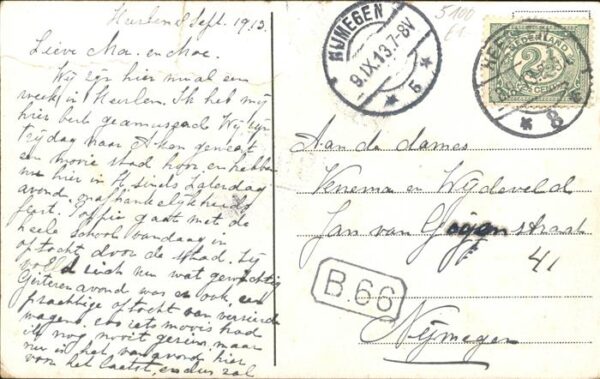 Heerlen Sept. 1913.
Lieve Ma. en Moe.
Wij zijn hier nu al een
week in Heerlen. Ik heb mij
hier best geamuseerd Wij zijn
vrijdag naar Aken geweest
een mooie stad hoor en hebben
nu hier in H. sinds Zaterdag
avond, onafhankelijkheids
feest. gaat met de
heele school vandaag in
optocht door de stad.
wat
Gisterenavond was er ook een
prachtige optocht van versierde
wagens, zoo iets moois had
ik nog nooit gezien, maar
nu is het van avond hier
voor het laatst, en dus zal
NIJMEGEN
9.IX.13.7-8V
5
5100
NEDERLAND
2½
HEERLEN
8
Aan de dames
Venema en Wijdeveld
Jan van Goyenstraat
41
B.66
Nijmegen